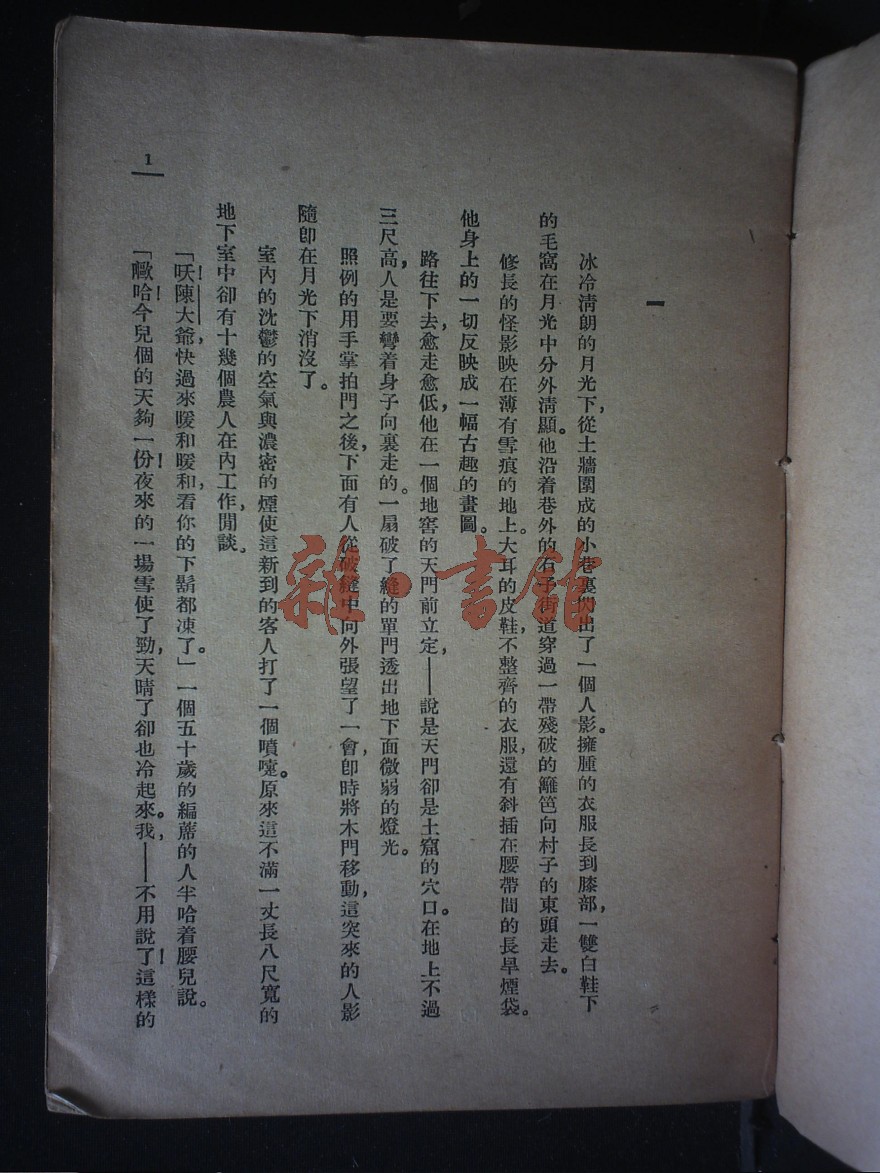 一
冰冷清朗的月光下，從土牆圍成的小巷裏閃出了一個人影。擁腫的衣服長到膝部，一雙白鞋下
的毛窩在月光中分外清顯。他沿着巷外的石子街道穿過一帶殘破的籬笆向村子的東頭走去。
修長的怪影映在薄有雪痕的地上。大耳的皮鞋，不整齊的衣服，還有斜插在腰帶間的長旱煙袋。
他身上的一切反映成一幅古趣的畫圖。
路往下去，愈走愈低，他在一個地窖的天門前立定，——說是天門卻是土窟的穴口。在地上不過
三尺高，人是要彎着身子向裏走的。一扇破了縫的單門透出地下面微弱的燈光。
照例的用手掌拍門之後，下面有人從破縫中向外張望了一會，卽時將木門移動，這突來的人影
隨卽在月光下消沒了。
室內的沈鬱的空氣與濃密的煙使這新到的客人打了一個噴嚏。原來這不滿一丈長八尺寬的
地下室中卻有十幾個農人在內工作，閒談。
「呅！陳大爺，快過來暖和暖和，看你的下鬍都凍了。」一個五十歲的編蓆的人半哈着腰兒說。
「噷哈！今兒個的天夠一份！夜來的一場雪使了勁，天晴了卻也冷起來。我，——不用說了！這樣的
1
雜·書館